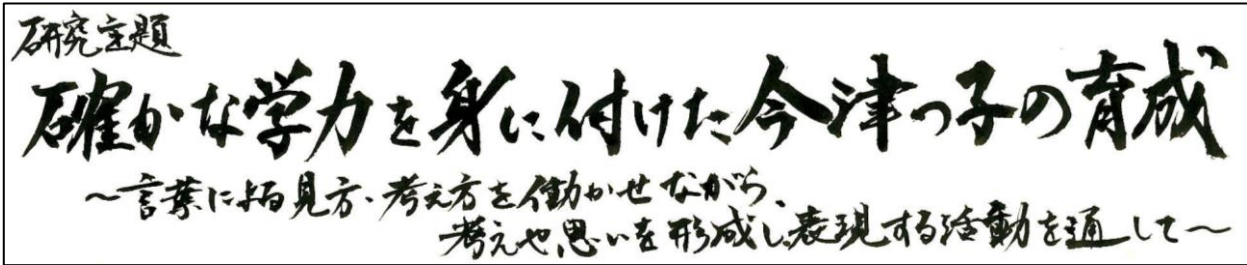 研究主題
確かな学力を身に付けた今津っ子の育成
～言葉による見方・考え方を働かせながら、
考えや思いを形成し、表現する活動を通して～